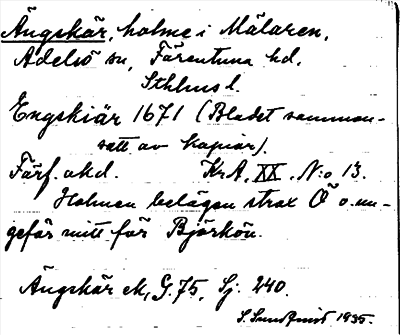 Ängskär, holme i Mälaren,
Adelsö sn, Färentuna hd.
Sthlms l.
Engskiär 1671 (Bladet samman-
satt av kopior).
Förf. okd. Kr.A. XX. N:o 13.
Holmen belägen strax Ö o. un-
gefär mitt för Björkön.
Ängskär ek, G. 75, Sj. 240.
S. Sundquist 1935.